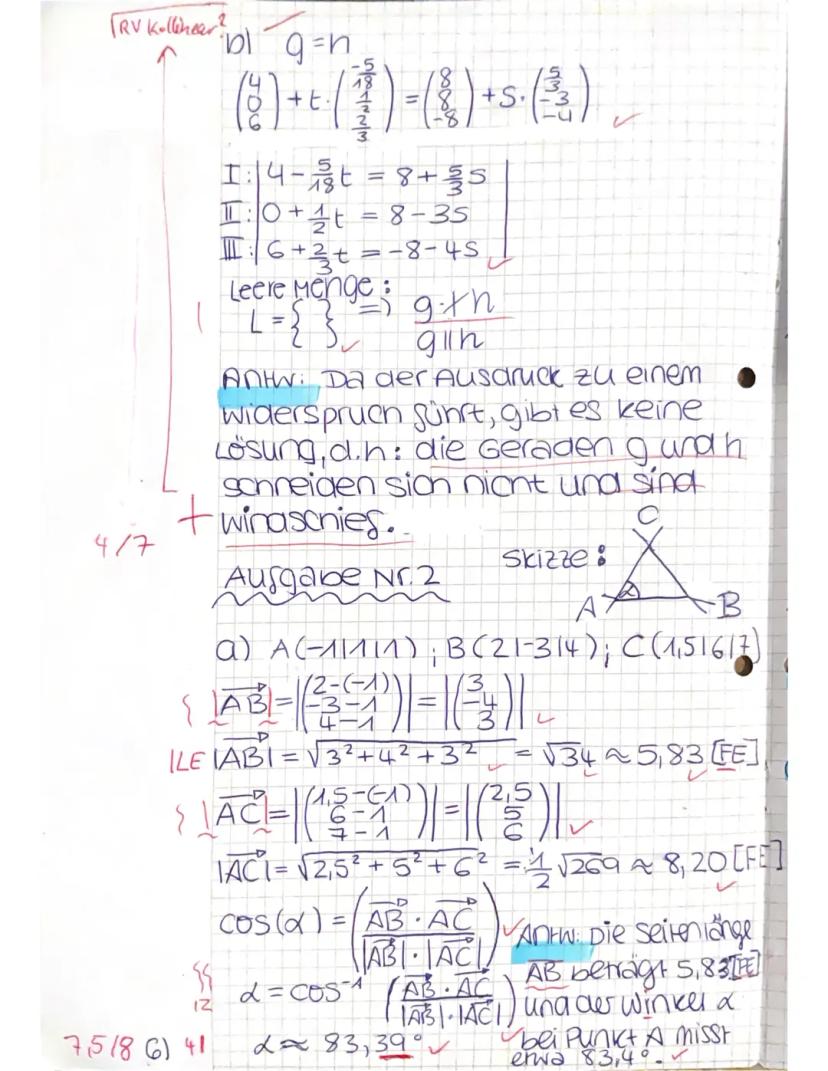 RV Kollinear?
b) g=h
(4 0 6) + t · (-5/18 1/2 2/3) = (8 8 -8) + s · (5/3 -3 -4)
I: 4 - 5/18 t = 8 + 5/3 s
II: 0 + 1/2 t = 8 - 3s
III: 6 + 2/3 t = -8 - 4s
Leere Menge:
L = { } => g ∦ h
g || h
Antw: Da der Ausdruck zu einem
widerspruch führt, gibt es keine
Lösung, d.h: die Geraden g und h
schneiden sich nicht und sind
windschief.
4/7
Aufgabe Nr. 2
Skizze:
C
α
A B
a) A(-1|1|1) ; B(2|-3|4) ; C(1,5|6|7)
|AB| = |(2-(-1) -3-1 4-1)| = |(3 -4 3)|
1LE |AB| = √3²+4²+3² = √34 ≈ 5,83 [FE]
|AC| = |(1,5-(-1) 6-1 7-1)| = |(2,5 5 6)|
|AC| = √2,5² + 5² + 6² = 1/2 √269 ≈ 8,20 [FE]
cos(α) = (AB · AC / |AB| · |AC|)
α = cos⁻¹ (AB · AC / |AB| · |AC|)
α ≈ 83,39°
Antw: Die Seitenlänge
AB beträgt 5,83 [FE]
und der Winkel α
bei Punkt A misst
etwa 83,4°.
12
7,5/8 (6)